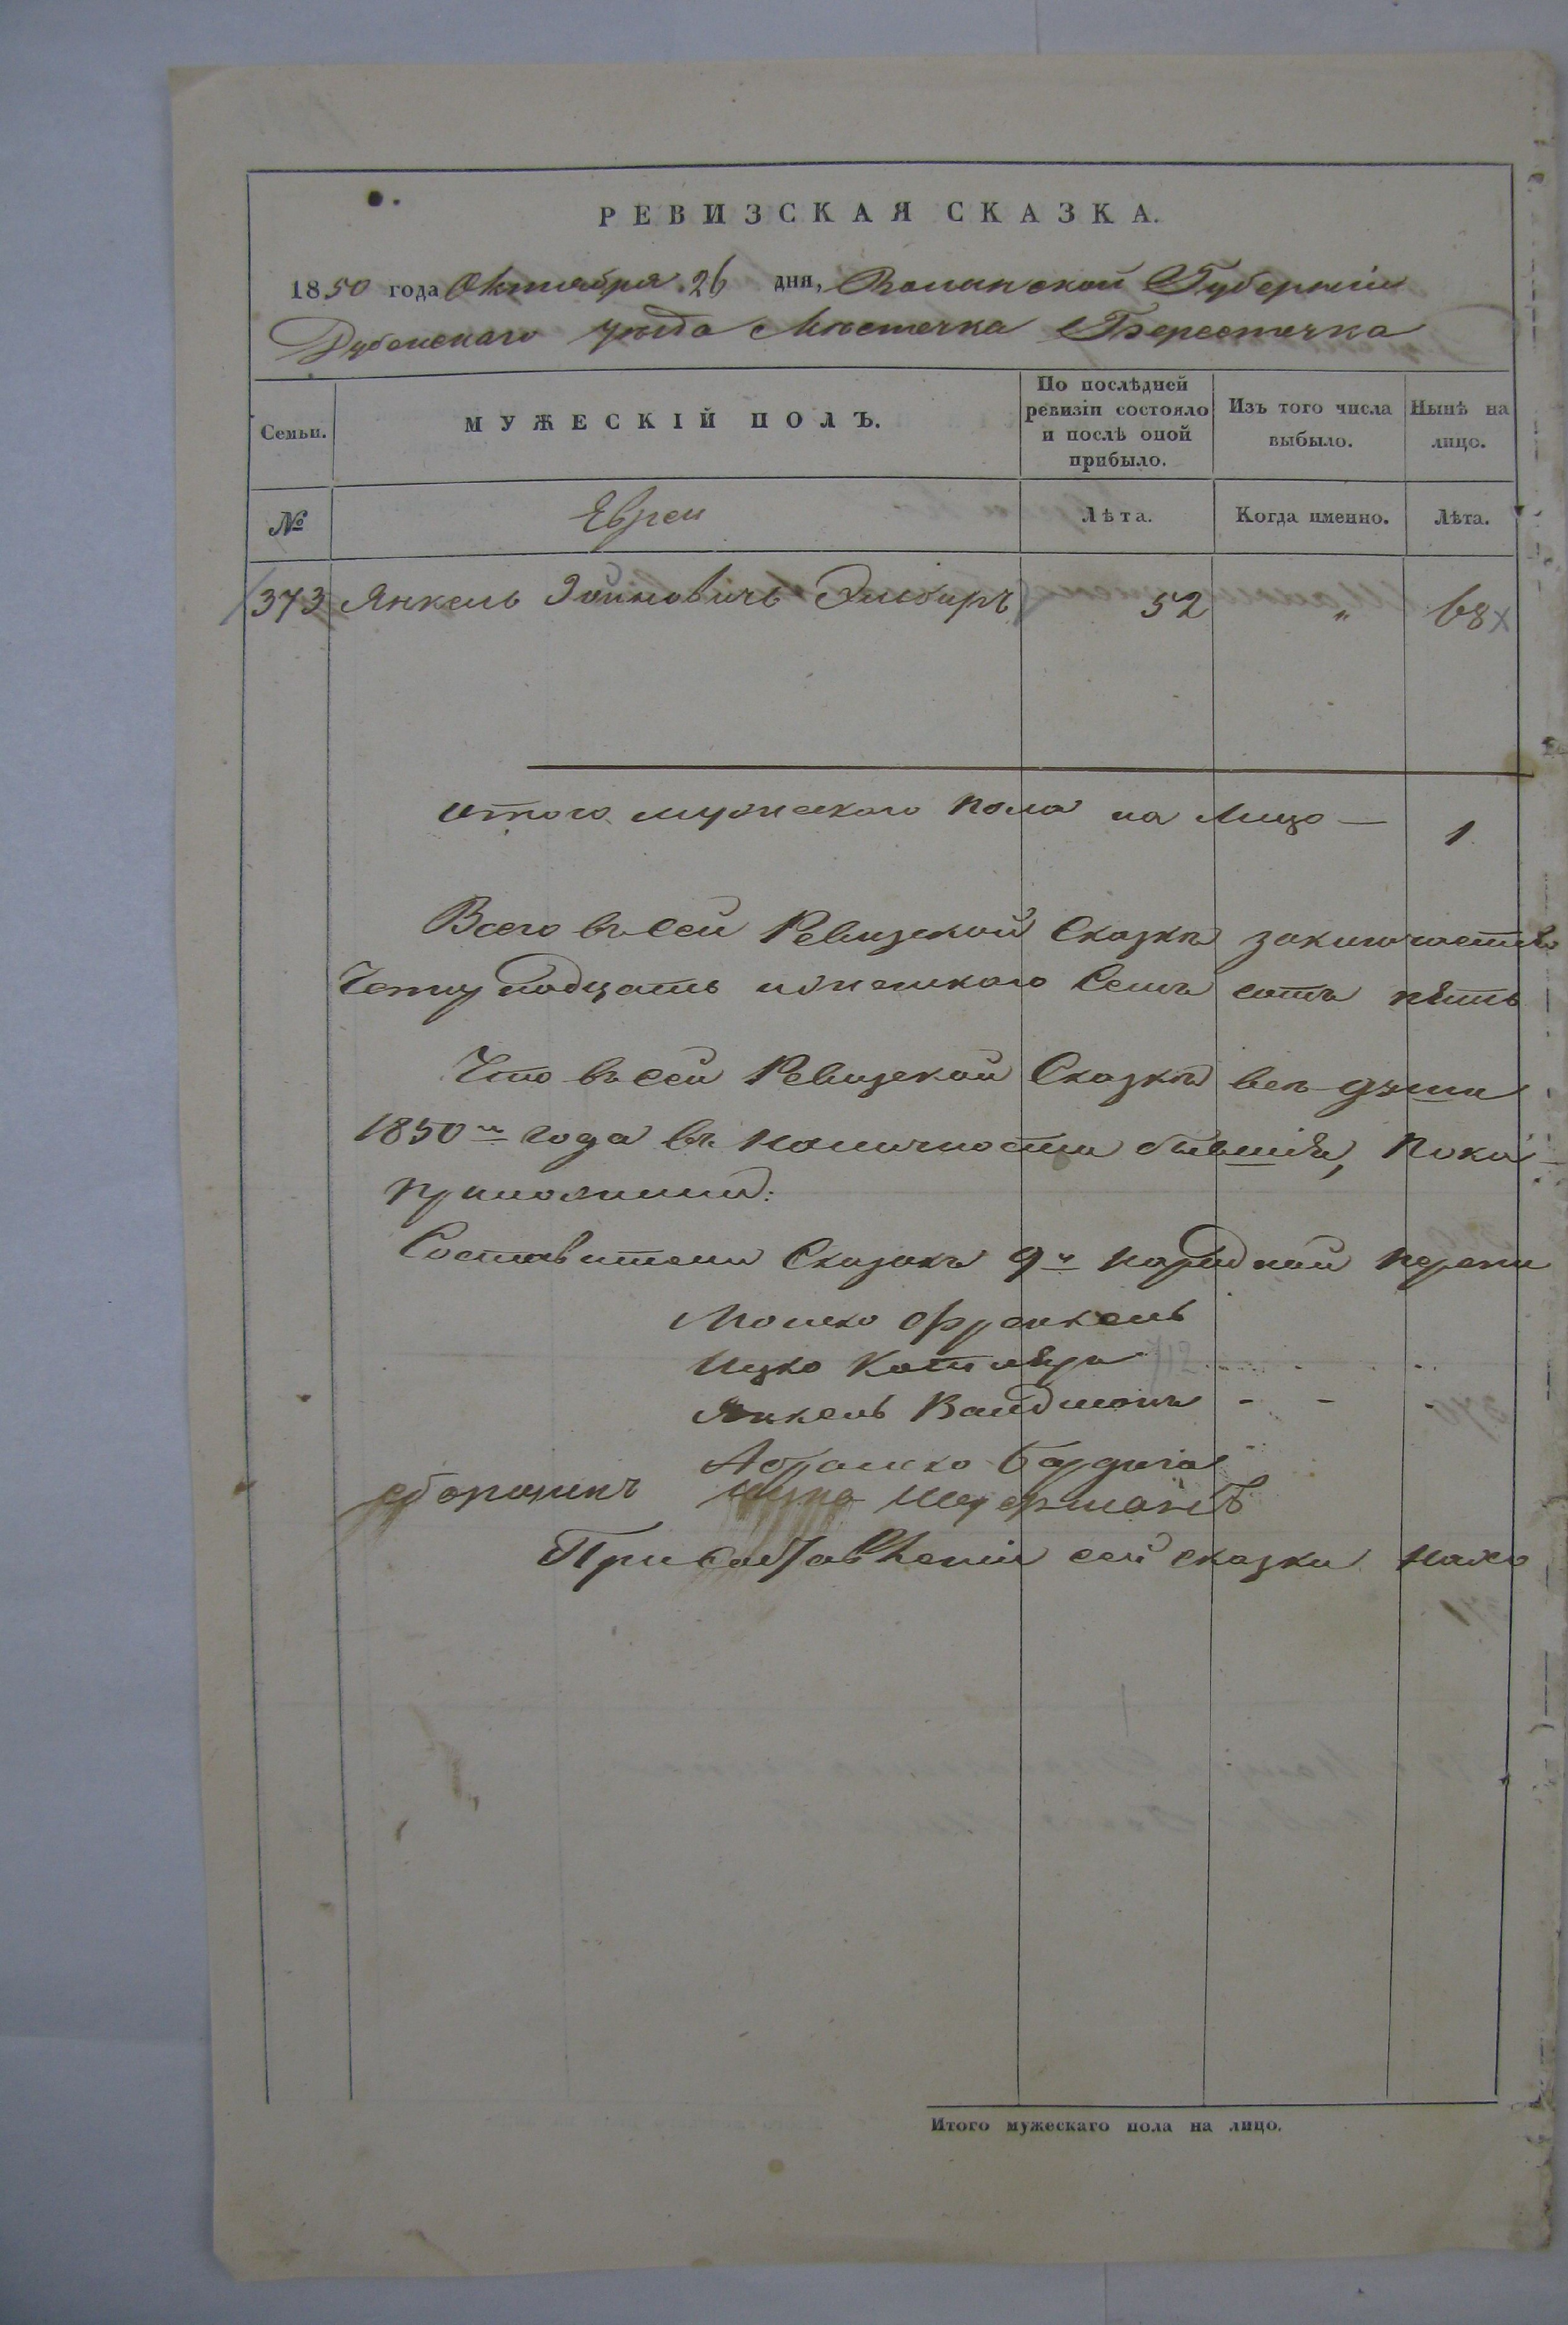 РЕВИЗСКАЯ СКАЗКА.
1850 года Октября 26 дня, Волынской Губернии
Дубенскаго уѣзда Мѣстечка Берестечка
Семьи. МУЖЕСКІЙ ПОЛЪ. По послѣдней ревизіи состояло и послѣ оной прибыло. Изъ того числа выбыло. Нынѣ на лицо.
№ Евреи Лѣта. Когда именно. Лѣта.
373 Янкель 52 " 68
итого мужескаго пола на лицо — 1
Всего въ сей Ревизской Сказкѣ заключается
Семъ сотъ пять
Что въ сей Ревизской Сказкѣ всѣ души
1850го года въ наличности бывшія,
Составители Сказокъ 9й народной пере
Мошко Френкель
Ицко Котляръ
Янкель Вайдманъ
Абрамко
сборщикъ
При составленіи сей сказки
Итого мужескаго пола на лицо.